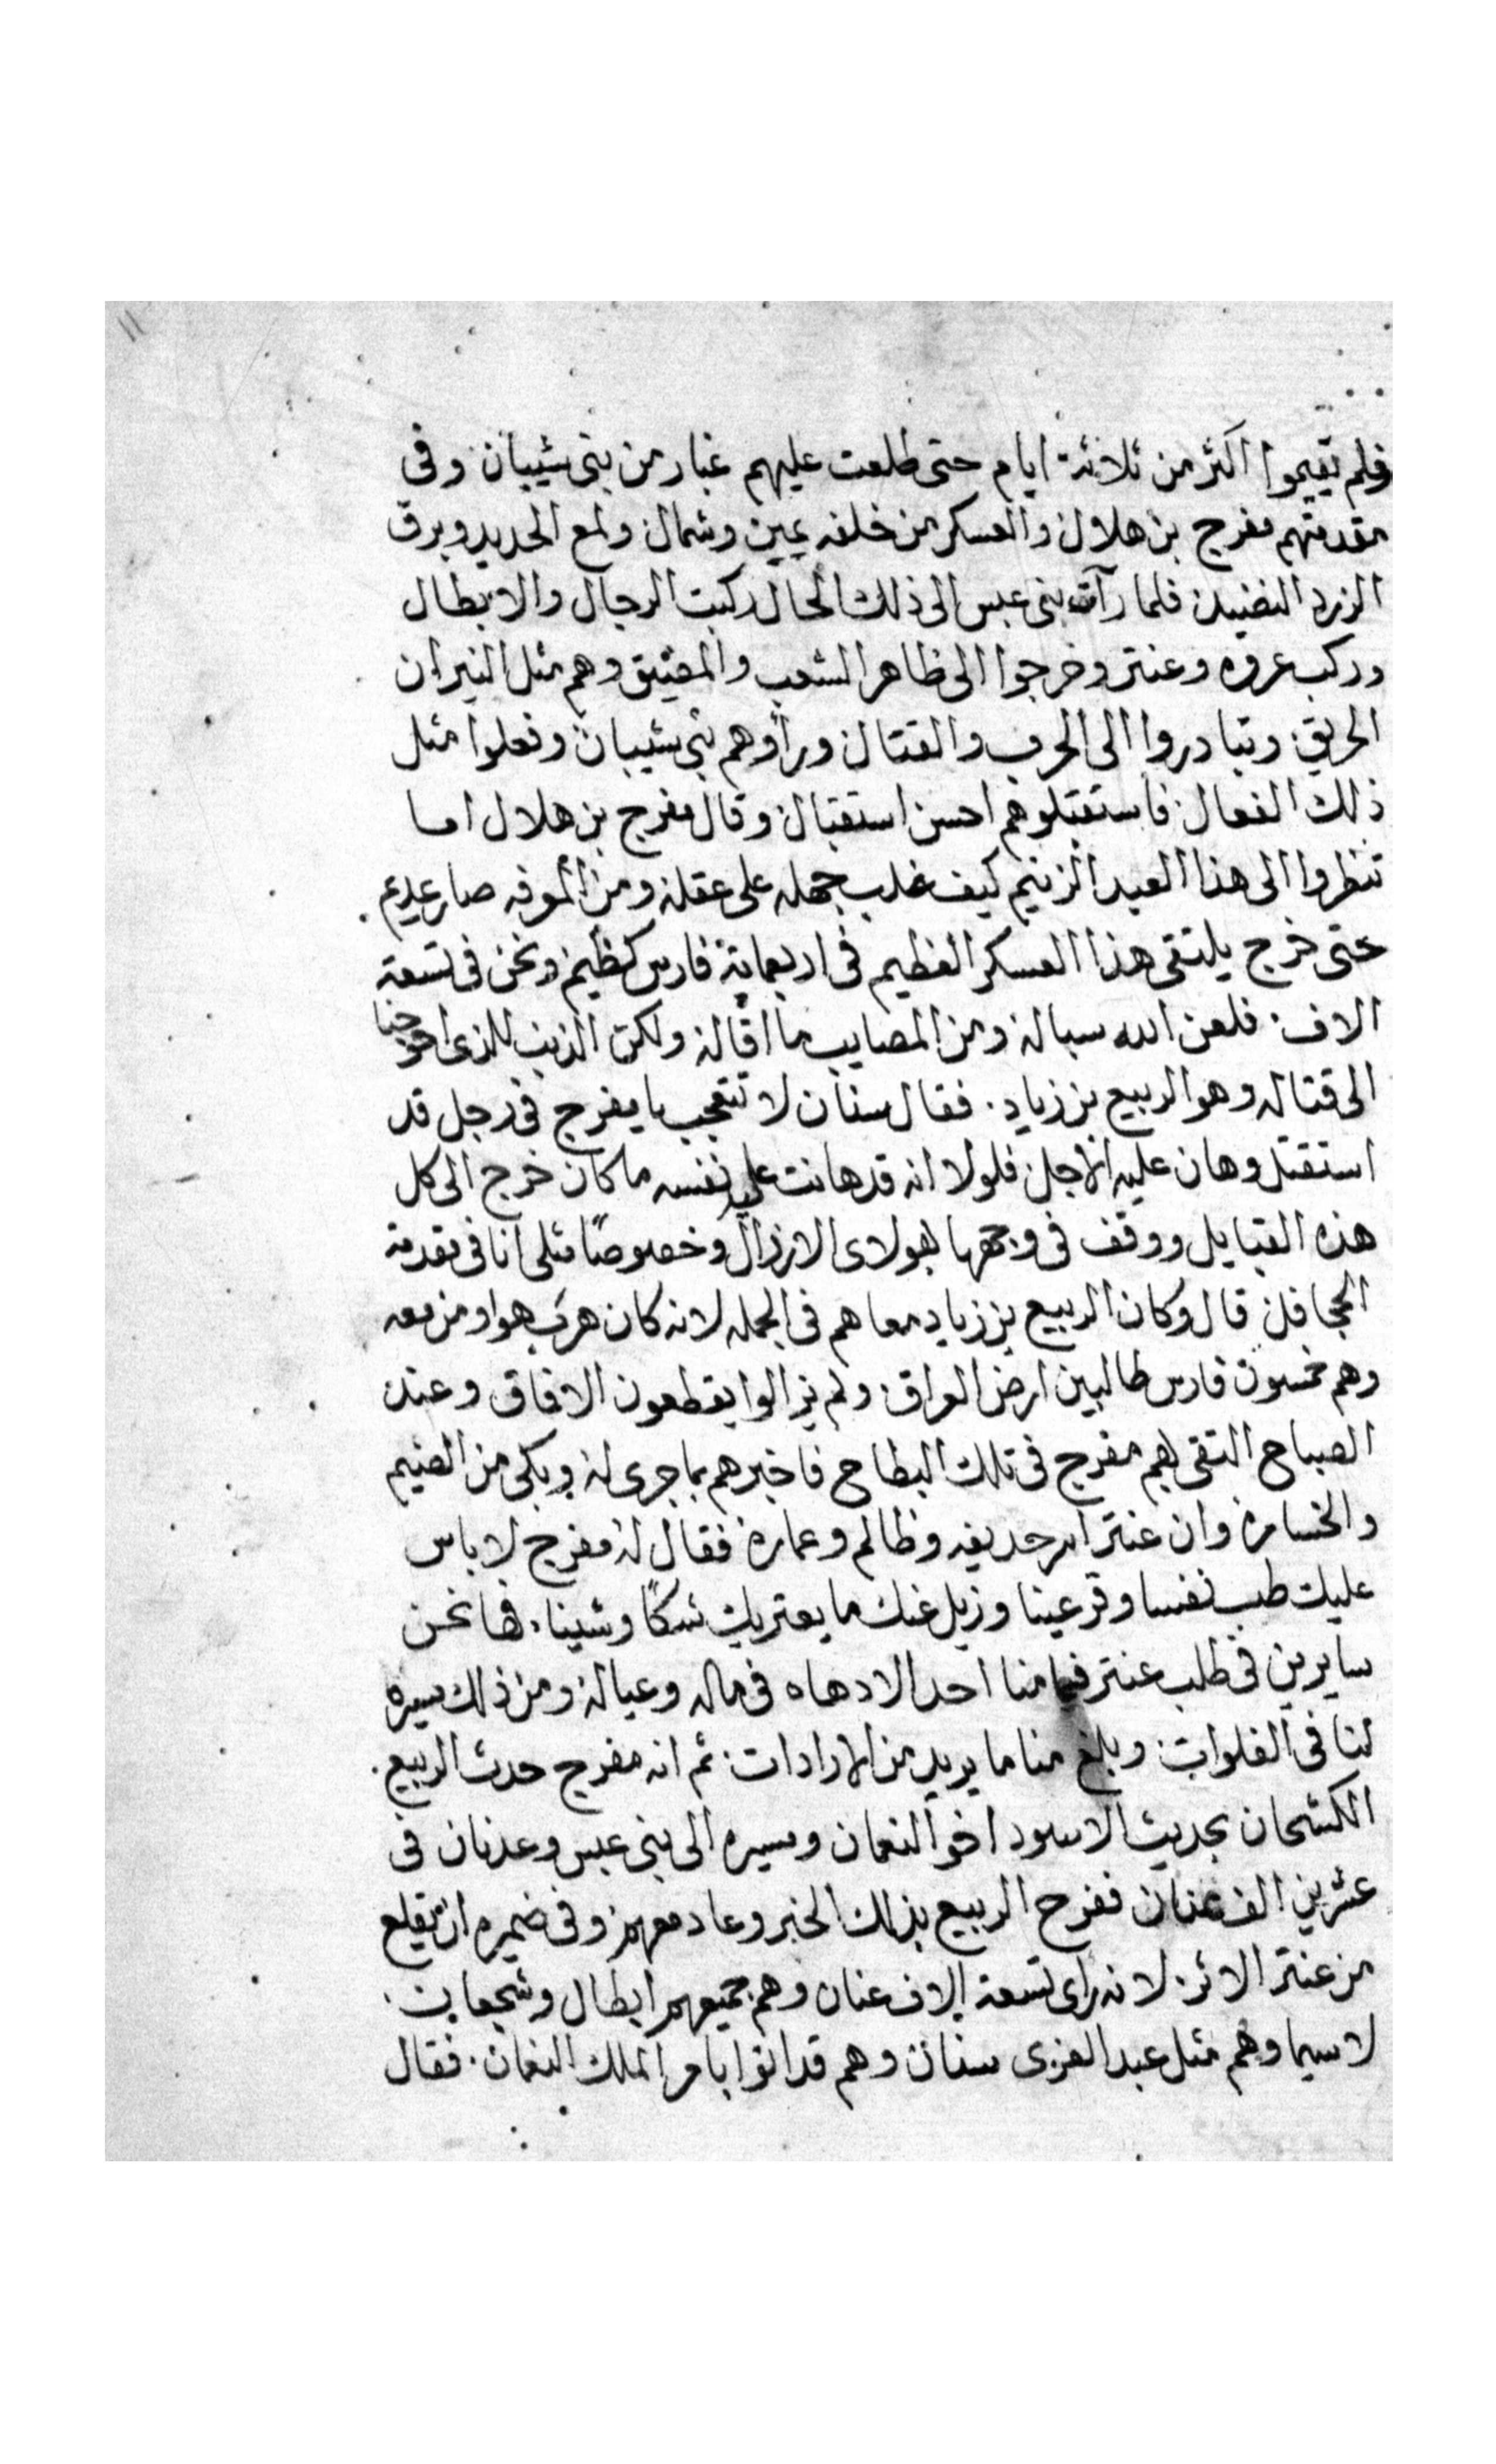 ١١
فلم يقيموا اكثر من ثلاثة ايام حتى طلعت عليهم غبار من بنى شيبان وفى
مقدمتهم مفرج بن هلال والعسكر من خلفه يمين وشمال ولمع الحديد وبرق
الزرد النضيد فلما رآت بنى عبس الى ذلك الحال ركبت الرجال والابطال
وركب عروه وعنتر وخرجوا الى ظاهر الشعب والمضيق وهم مثل النيران
الحريق وتبادروا الى الحرب والقتال وراوهم بنى شيبان وفعلوا مثل
ذلك الفعال فاستقبلوهم احسن استقبال وقال مفرج بن هلال اما
تنظروا الى هذا العبد الزنيم كيف غلب جهله على عقله ومن المعرفه صار عديم
حتى خرج يلتقى هذا العسكر العظيم فى اربعماية فارس كظيم ونحن فى تسعة
الاف فلعن الله سباله ومن المصايب ما اقاله ولكن الذنب للذى احوجنا
الى قتاله وهو الربيع بن زياد فقال سنان لا تتعجب يا مفرج فى رجل قد
استقتل وهان عليه الاجل فلولا انه قد هانت عليه نفسه ما كان خرج الى كل
هذه القبايل ووقف فى وجهها بهولاى الارزال وخصوصًا مثلى انا فى مقدمة
الجحافل قال وكان الربيع بن زياد معاهم فى الجمله لانه كان هرب هوا ومن معه
وهم خمسون فارس طالبين ارض العراق ولم يزالوا يقطعون الافاق وعند
الصباح التقى بهم مفرج فى تلك البطاح فاخبرهم بما جرى له وبكى من الضيم
والخساره وان عنتر اسر حديفه وظالم وعماره فقال له مفرج لا باس
عليك طب نفسا وقر عينا وزيل عنك ما يعتريك شكًا وشينا فها نحن
سايرين فى طلب عنتر فما منا احد الا دهاه فى ماله وعياله ومن ذلك سيره
لنا فى الفلوات وبلغ منا ما يريد من الارادات ثم انه مفرج حدث الربيع
الكشحان بحديث الاسود اخو النعمان ومسيره الى بنى عبس وعدنان فى
عشرين الف عنان ففرح الربيع بذلك الخبر وعاد معهم وفى ضميره ان يقلع
من عنتر الاثر لانه راى تسعة الاف عنان وهم جميعهم ابطال وشجعان
لا سيما وهم مثل عبد العزى سنان وهم قد اتوا بامر الملك النعمان فقال